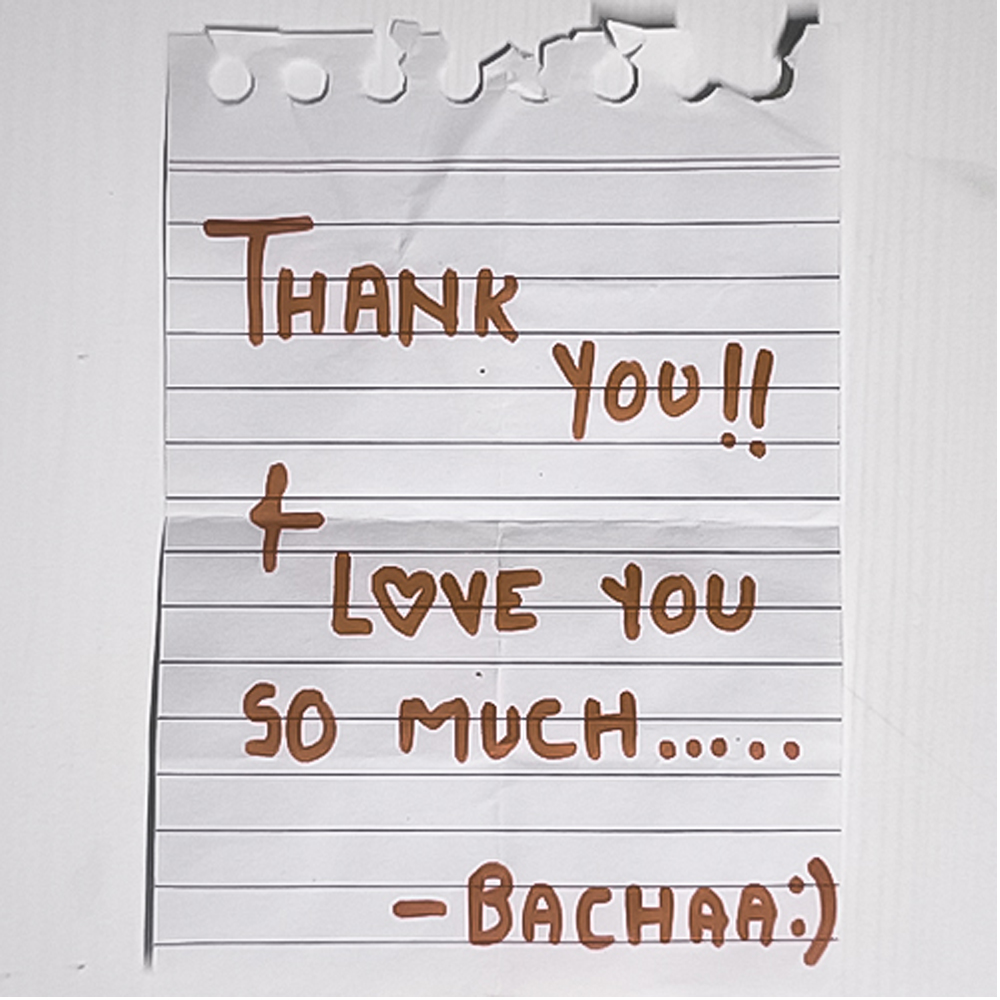 THANK
YOU!!
+
LOVE YOU
SO MUCH.....
-BACHAA:)